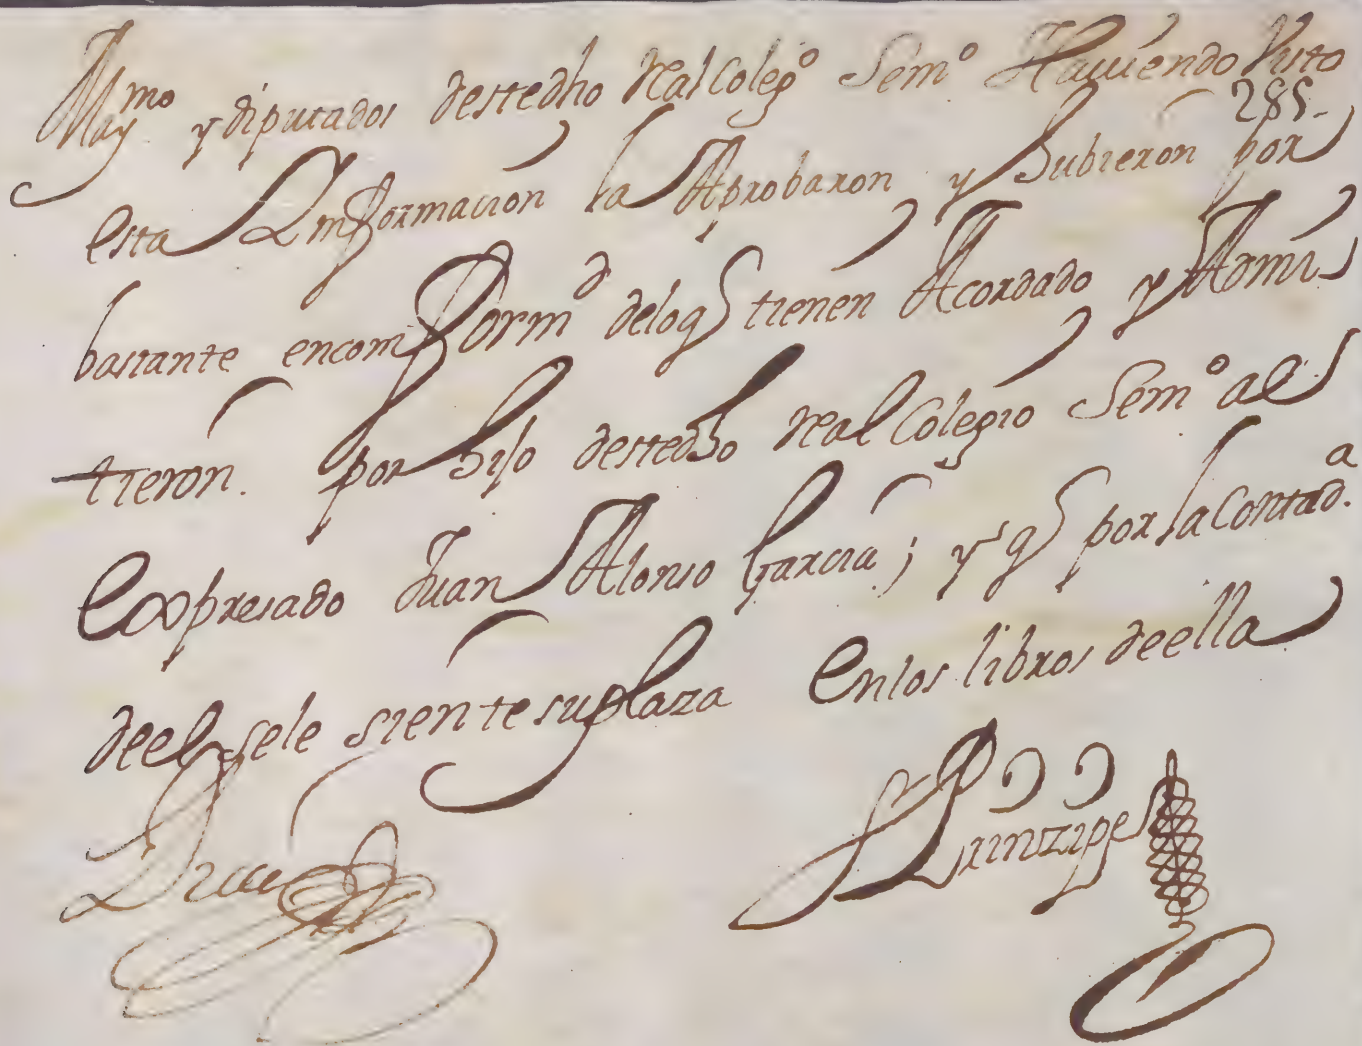 Maymo y diputados destedho Real Colego Semo Haviendo Visto
285.
esta Ymformacion la Aprobaron y hubieron por
bastante encomformd deloq tienen Acordado y Admi
tieron. por hijo destedho Real Colegio Semo al
Expresado Juan Alonso Garcia; y q por la Contada.
deel sele siente su plaza En los libros deella
Prinzipe